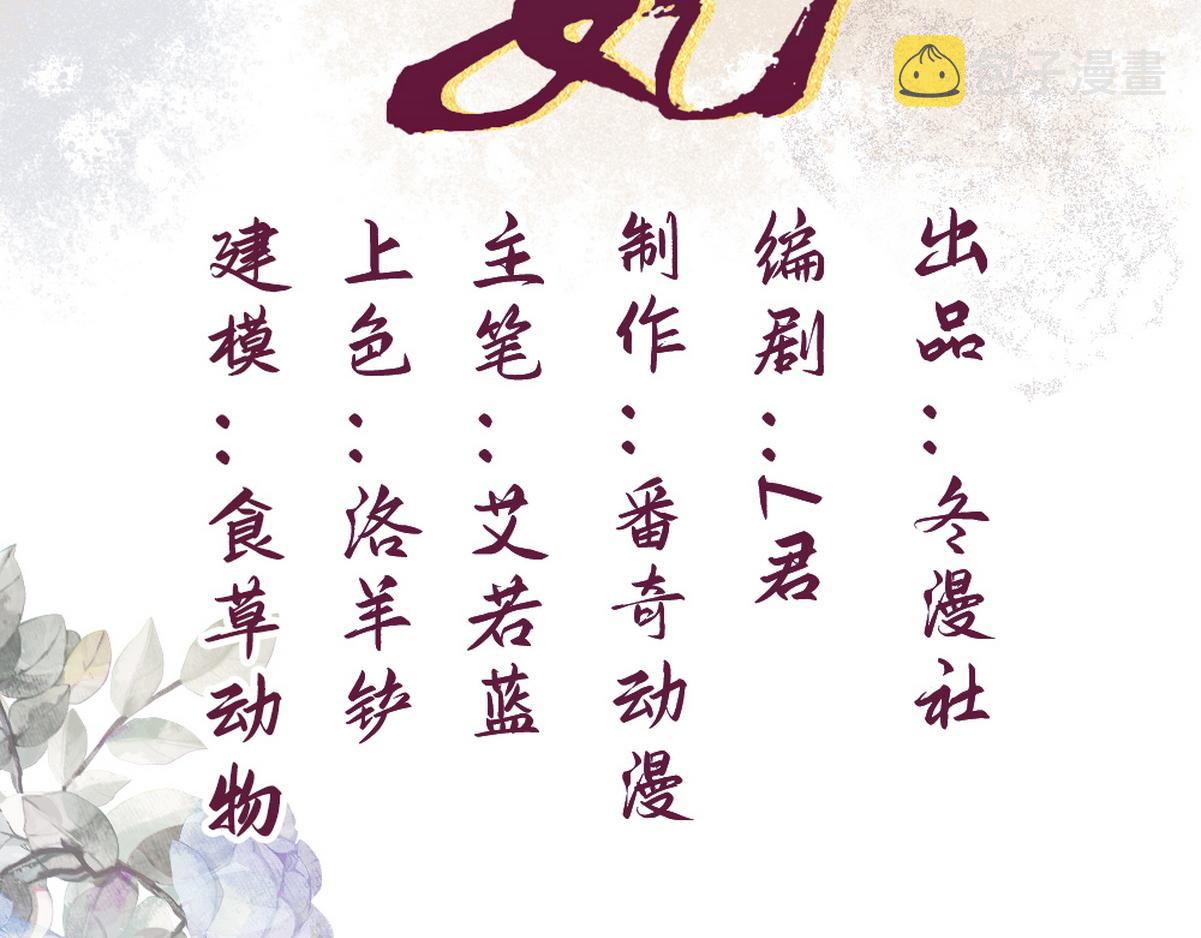 包子漫畫
出品：冬漫社
编剧：君
制作：番奇动漫
主笔：艾若蓝
上色：洛羊铲
建模：食草动物